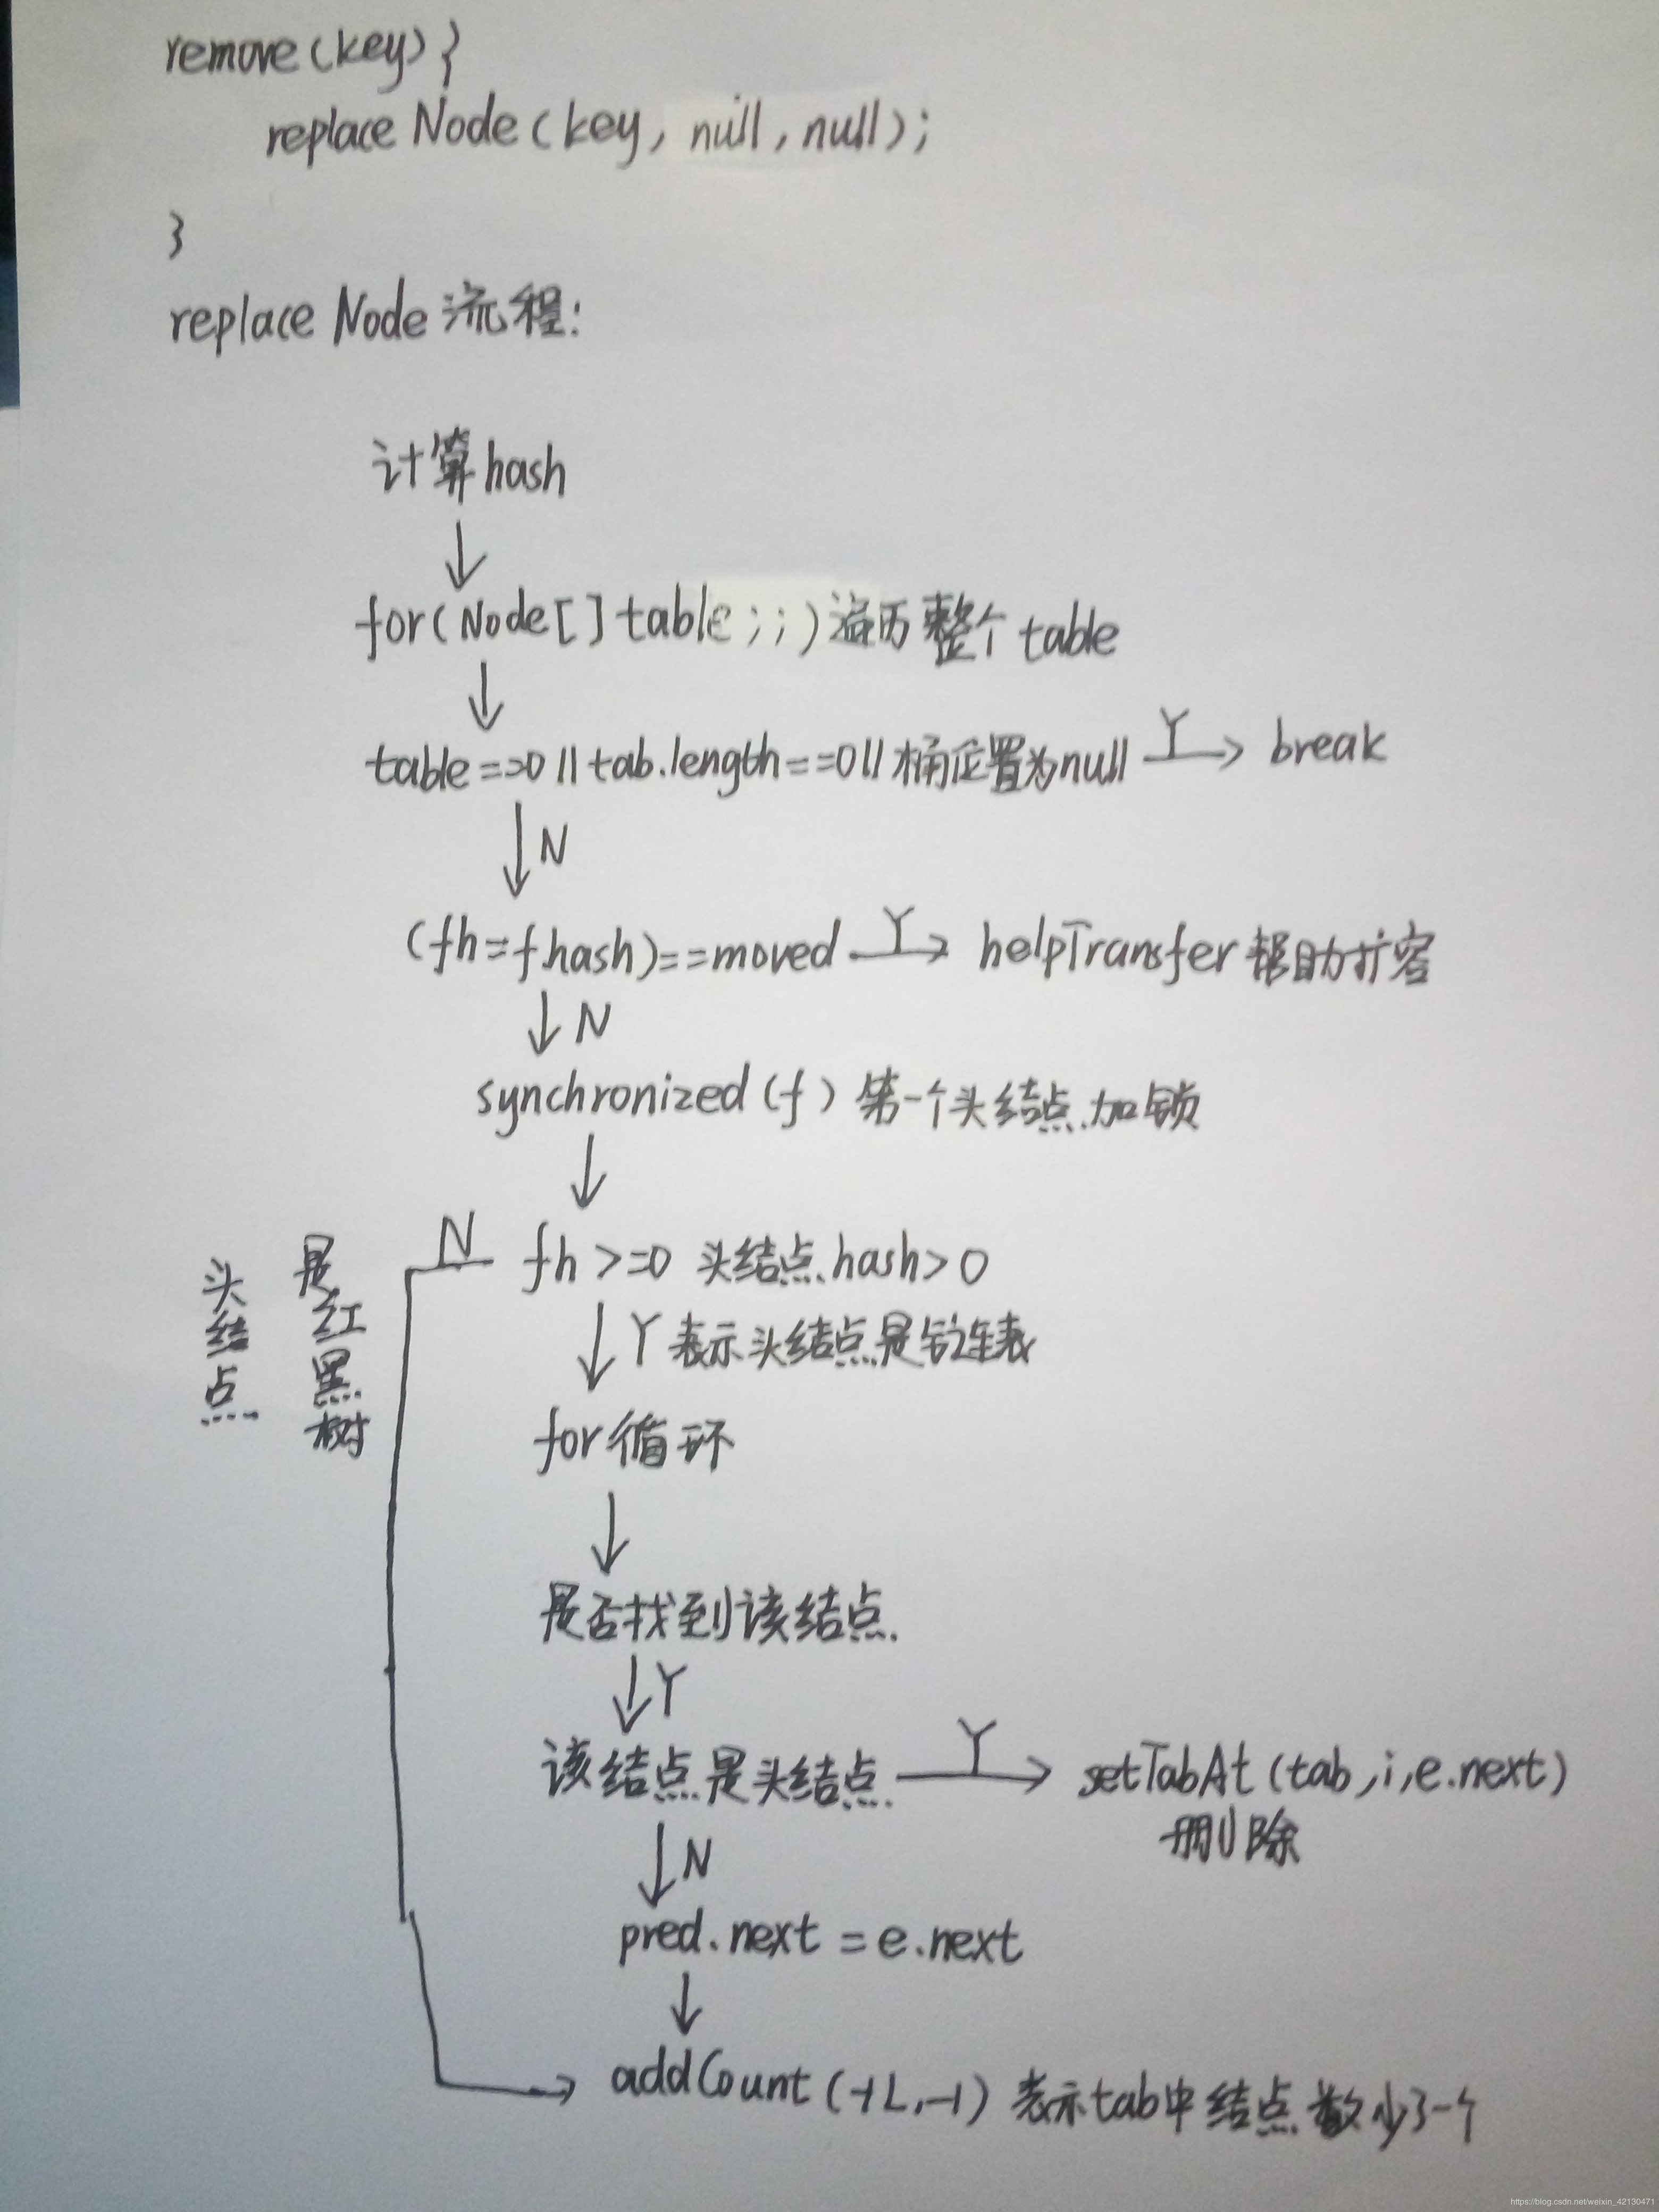 remove(key) }
replace Node(key, null, null);
}
replace Node 流程:
计算hash
for(Node[] table ; ;) 遍历整个table
table==0 || tab.length==0|| 桶位置为null Y break
N
(fh=f.hash)==moved Y helpTransfer 帮助扩容
N
synchronized(f) 第一个头结点加锁
N fh >=0 头结点hash>0
头结点
是红黑树
Y 表示头结点是链表
for循环
是否找到该结点
Y
该结点是头结点 Y setTabAt(tab,i,e.next)
删除
N
pred.next = e.next
addCount(-1L,-1) 表示tab中结点数少了一个
https://blog.csdn.net/weixin_42130471